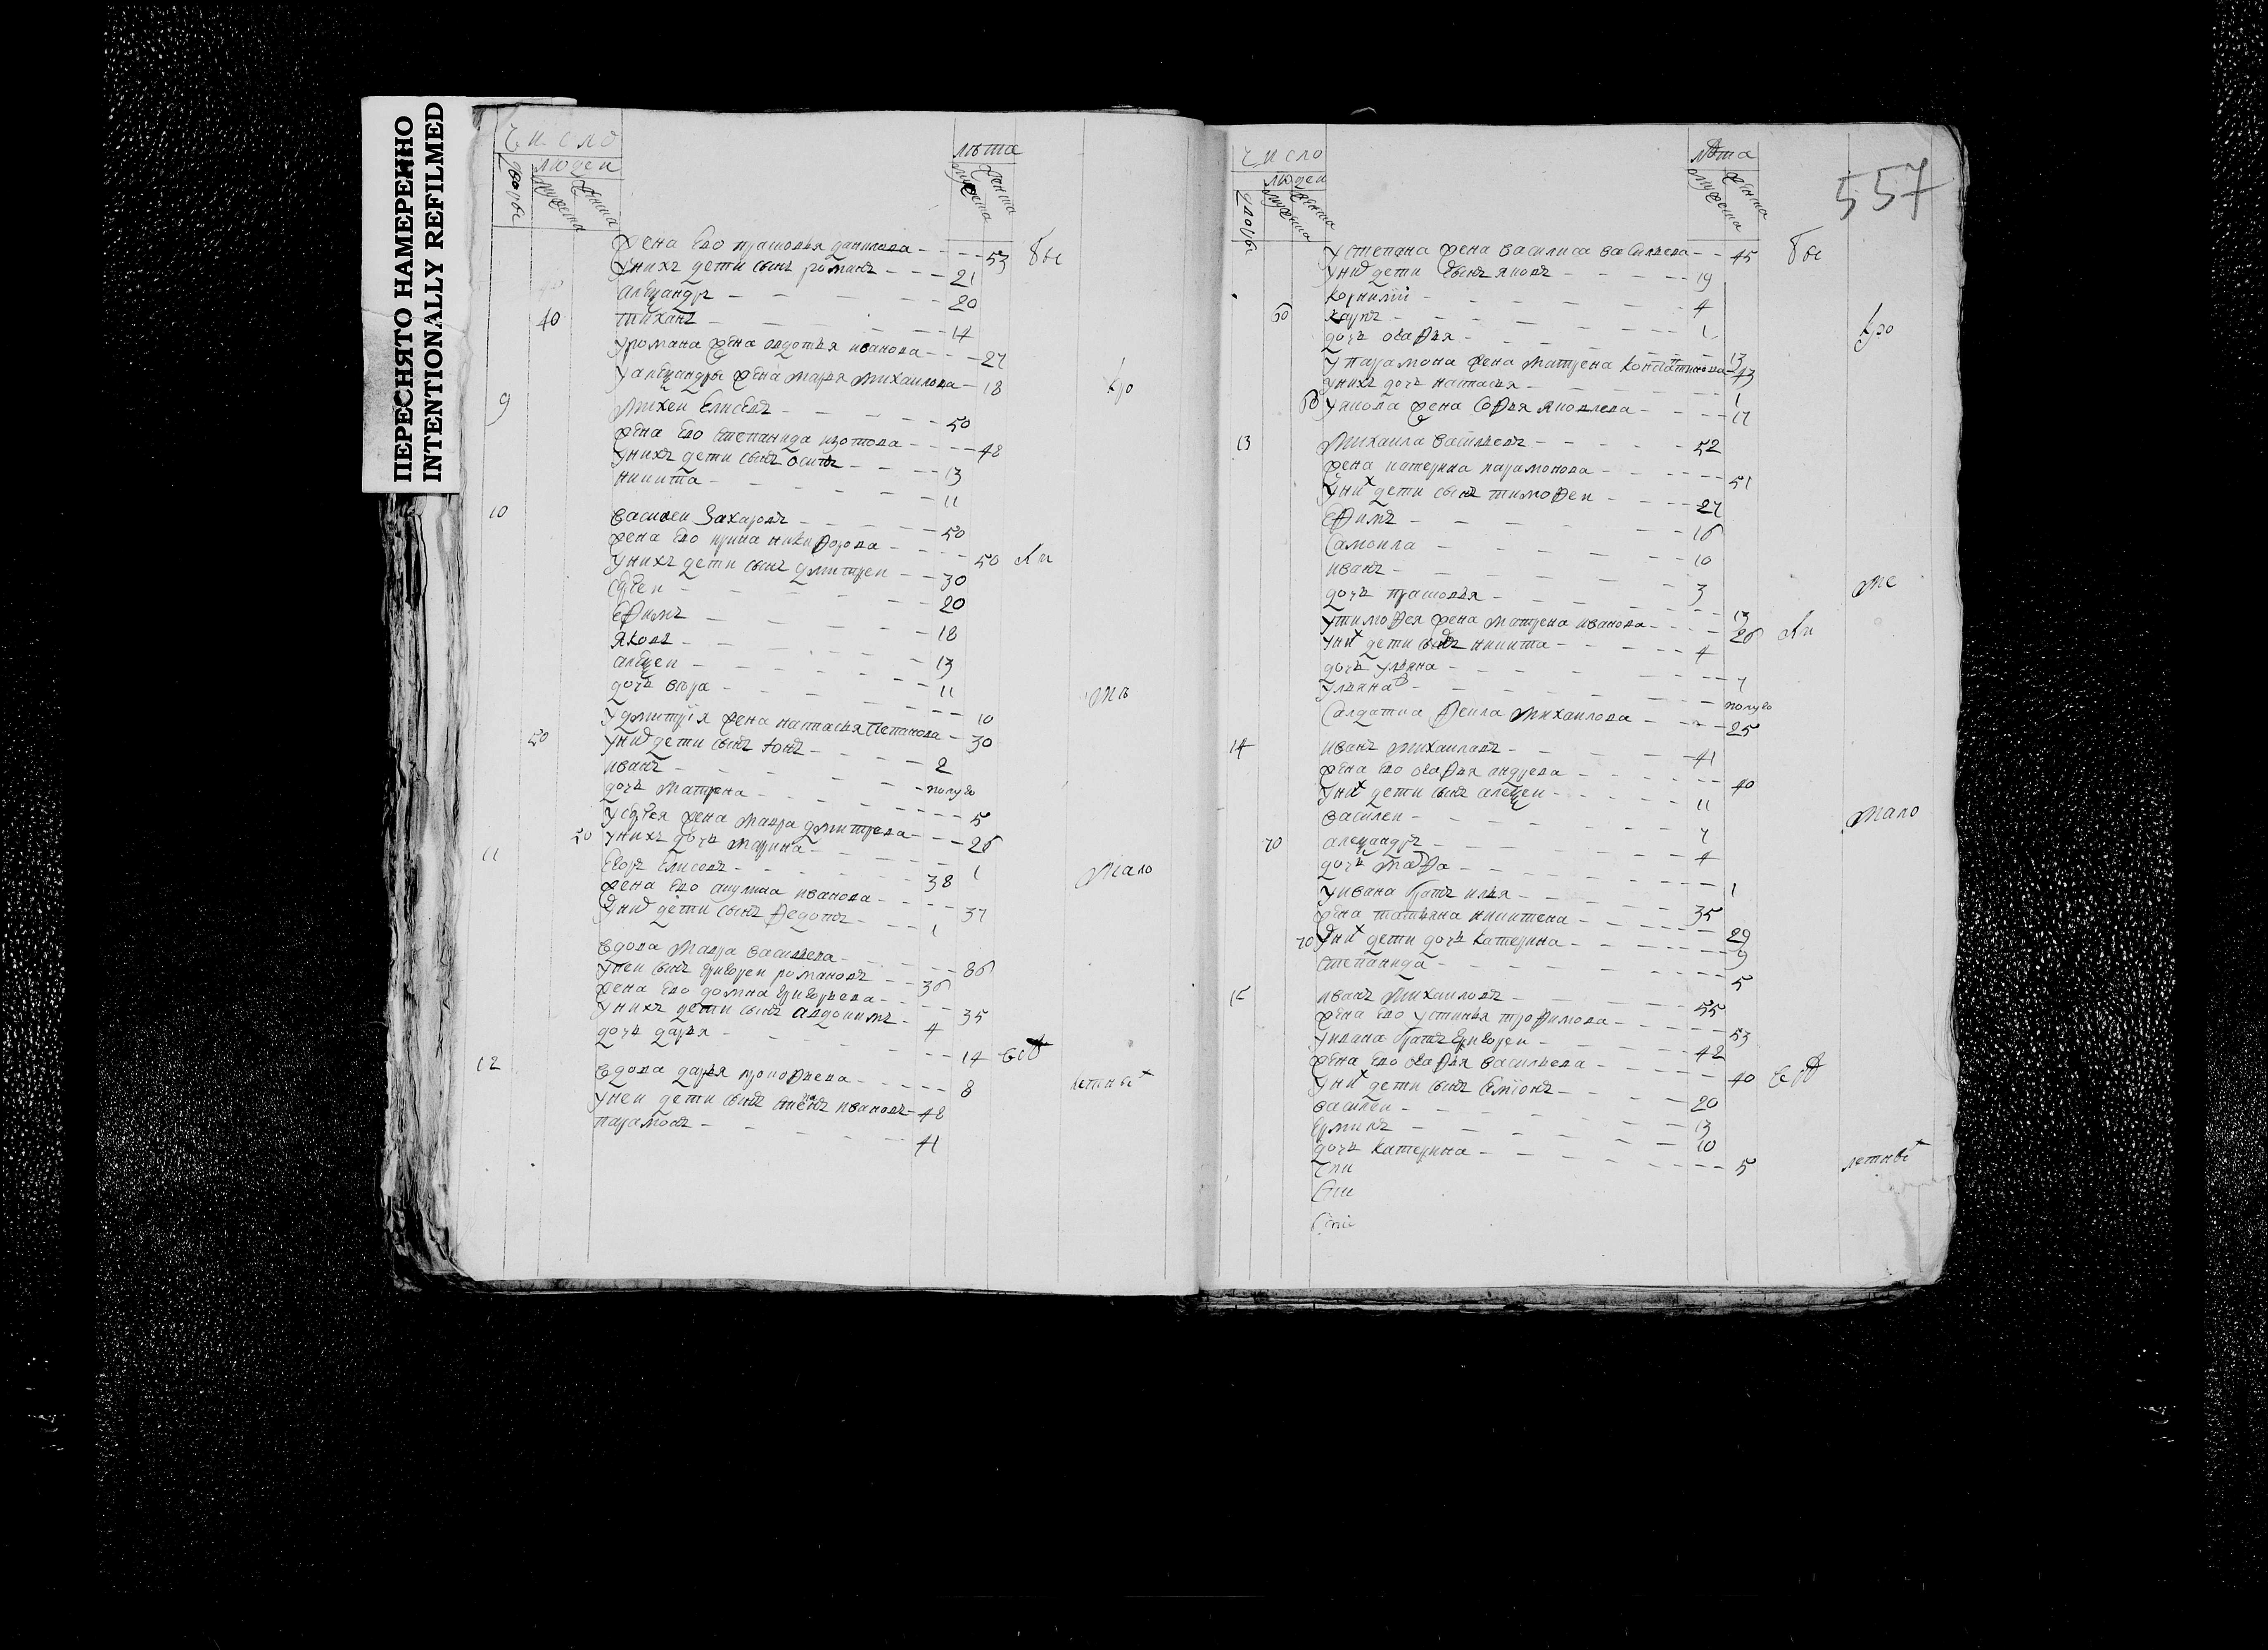 ПЕРЕСНЯТО НАМЕРЕННО
INTENTIONALLY REFILMED
число
людеи
дворы
мужеска
женска
лѣта
мужеска
женска
жена Ево прасковья данилова 53 бы
унихъ дети сынъ романъ 21
алеѯандръ 20
40 тиханъ 14
уромана жена авдотья иванова 27
уалеѯандры жена марья михаилова 18 кро
9 михеи Елисеевъ 50
жена Ево степанида изотова 48
унихъ дети сынъ осипъ 13
никита 11
10 василеи Захаровъ 50
жена Ево ирина никиѳорова 50 Ки
унихъ дети сынъ дмитреи 30
сергеи 20
еѳимъ 18
яковъ 13
алеѯеи 11
дочь вера 10
удмитрїя жена настасья степанова 30
50 у них дети сынъ 2
иванъ полуго
дочь матрена 5
у сергея жена мавра дмитрева 26
50 унихъ дочь марина 1
11 Егоръ Елисеевъ 38 мало
жена Ево акулина иванова 37
у них дети сынъ ѳедотъ 1
вдова мавра васильева 86
унеи сынъ григореи романовъ 36
жена Ево домна григорьева 35
унихъ дети сынъ авдокимъ 4
дочь дарья 14
12 вдова дарья прокоѳьева 8 летных
унеи дети сынъ степанъ ивановъ 48
парамонъ 41
число
людеи
дворы
мужеска
женска
лѣта
мужеска
женска
557
устепана жена василиса васильева 45 бы
у них дети сынъ яковъ 19
корнилїи 4
60 карпъ 1 кро
дочь оваѳья 13
упарамона жена матрена константинова 43
унихъ дочь настасья 1
60 уякова жена соѳья яковлева 17
13 михаила васильевъ 52
жена катерина парамонова 51
у них дети сынъ тимоѳеи 27
еѳимъ 16
самоила 10
иванъ 3
дочь прасковья 13 же
утимоѳея жена матрена иванова 26 Ки
у них дети сынъ никита 4
дочь ульяна 7
ульяна полуго
салдатка ѳекла михаилова 25
14 иванъ михаиловъ 41
жена Ево оваѳья андреева 40
у них дети сынъ алеѯеи 11
василеи 7 мало
70 алеѯандръ 4
дочь 1
уивана братъ илья 35
жена татьяна никитена 29
70 у них дети дочь катерина 9
степанида 5
15 иванъ михаиловъ 55
жена Ево устинья троѳимова 53
уивана братъ григореи 42
жена Ево оваѳья васильева 40
у них дети сынъ семїонъ 20
василеи 13
10
дочь катерина 5 летных